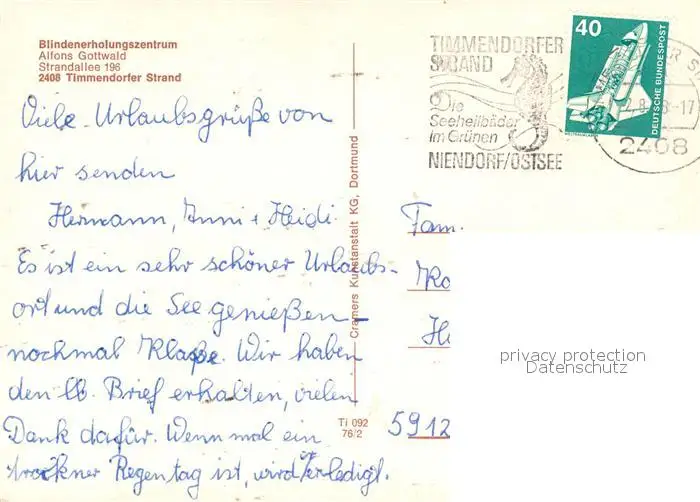 Blindenerholungszentrum
Alfons Gottwald
Strandallee 196
2408 Timmendorfer Strand
Viele Urlaubsgrüße von
hier senden
Hermann, Anni + Heidi.
Es ist ein sehr schöner Urlaubs-
ort und die See genießen
nochmal Klaße. Wir haben
den lb. Brief erhalten, vielen
Dank dafür. Wenn mal ein
trockner Regentag ist, wird erledigt.
Cramers Kunstanstalt KG, Dortmund
Ti 092
76/2
TIMMENDORFER
STRAND
Die
Seeheilbäder
im Grünen
NIENDORF/OSTSEE
40
DEUTSCHE BUNDESPOST
-17
2408
Fam.
Ro
He
5912
privacy protection
Datenschutz